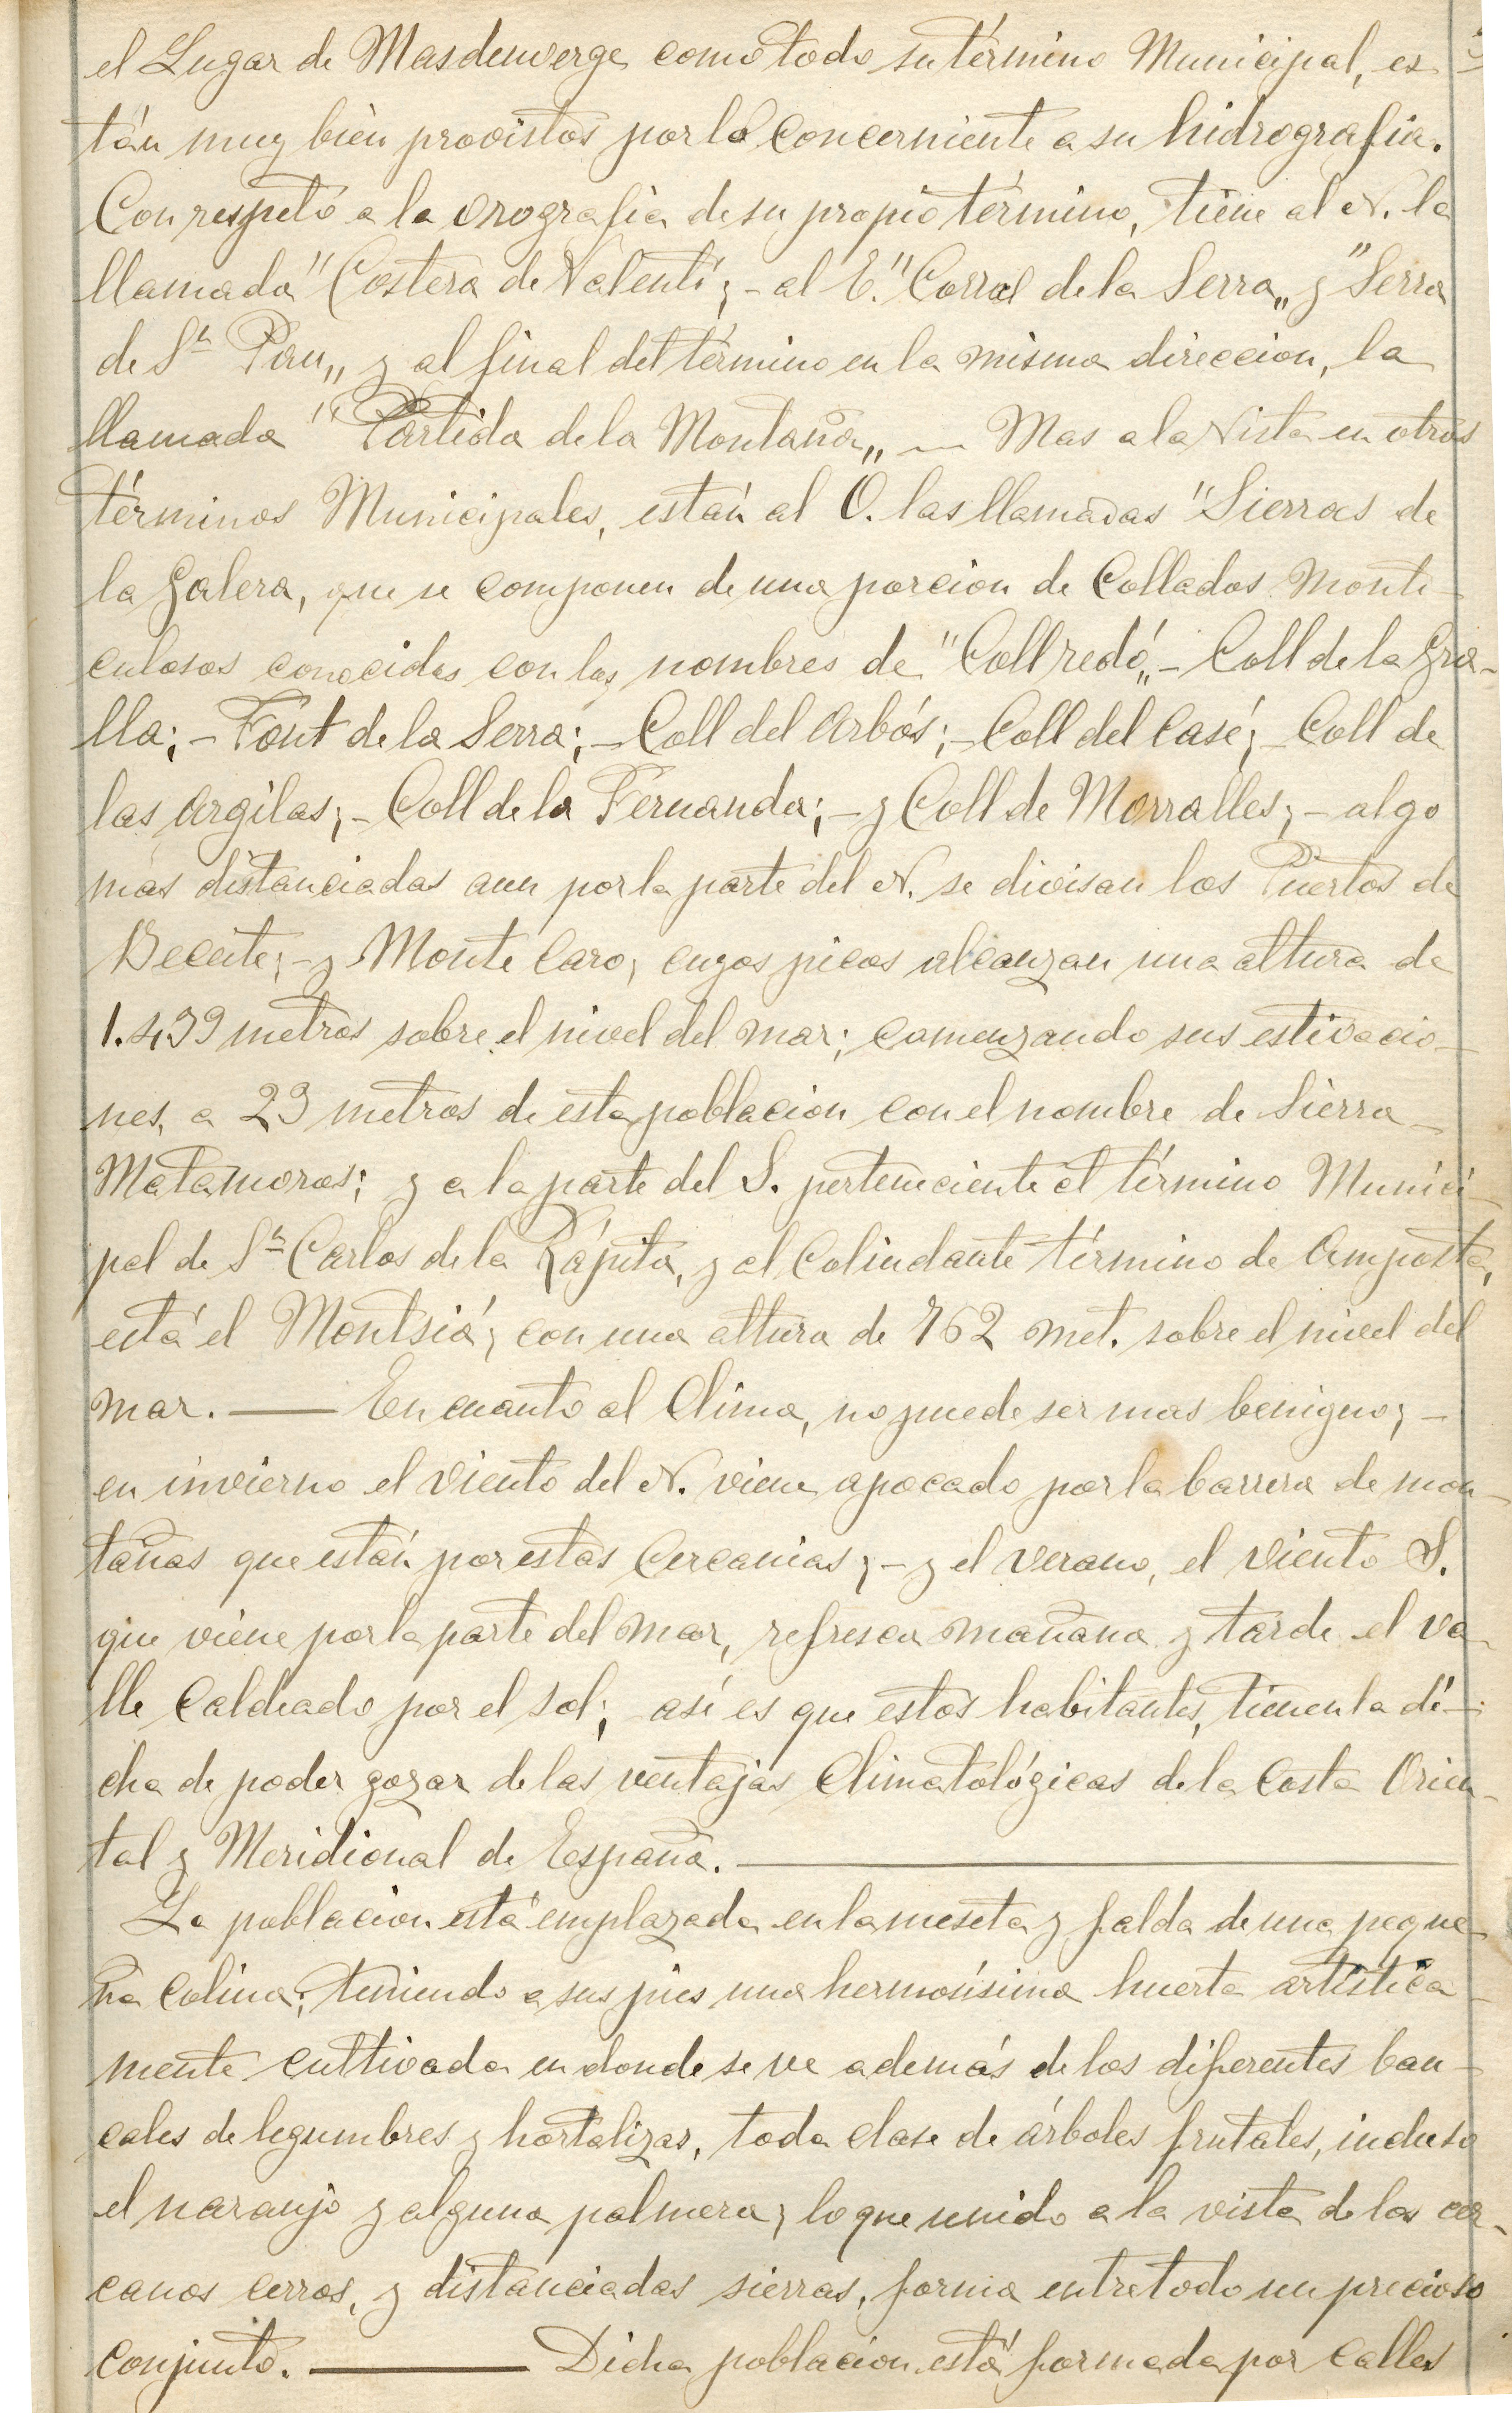 el Lugar de Masdenverge como todo su término Municipal, es
tán muy bién provistos por lo concerniente a su hidrografia.
Con respeto a la orografia de su propio término, tiene al N. la
llamada "Costera de Valentí; - al E. "Corral de la Serra„ y "Serra
de Sn Pau„ y al final del término en la misma direccion, la
llamada "Partida de la Montaña„ — Mas a la vista en otros
términos Municipales, están al O. las llamadas "Sierras de
la Galera, que se componen de una porcion de Collados Monti-
culosos conocidos con los nombres de "Coll redó„ - Coll de la Gra-
lla; - Font de la Serra; - Coll del Arbós; - Coll del Casé; - Coll de
las Argilas; - Coll de la Fernanda; - y Coll de Morralles; - algo
más distanciadas aun por la parte del N. se divisan los Puertos de
Beceite; - y Monte Caro, cuyos picos alcanzan una altura de
1.439 metros sobre el nivel del mar; comenzando sus estivacio-
nes, a 23 metros de esta poblacion con el nombre de Sierra-
Matamoros; y a la parte del S. perteneciente el término Munici-
pal de Sn Carlos de la Rápita, y el Colindante término de Amposta,
está el Montsiá; con una altura de 762 met. sobre el nivel del
mar. — En cuanto al Clima, no puede ser mas benigno; -
en invierno el viento del N. viene apocado por la barrera de mon-
tañas que están por estas Cercanias; - y el verano, el viento S.
que viene por la parte del mar, refresca mañana y tarde el va-
lle Caldeado por el sol; así es que estos habitantes, tienen la di-
cha de poder gozar de las ventajas Climatológicas de la Costa Orien-
tal y Meridional de España. —
La poblacion está emplazada en la meseta y falda de una peque-
ña Colina; teniendo a sus pies una hermosísima huerta artística-
mente cultivada en donde se ve además de los diferentes ban-
cales de legumbres y hortalizas, toda clase de árboles frutales, incluso
el naranjo y alguna palmera; lo que unido a la vista de los cer-
canos cerros, y distanciadas sierras, forma entre todo un precioso
conjunto. — Dicha poblacion está formada por calles